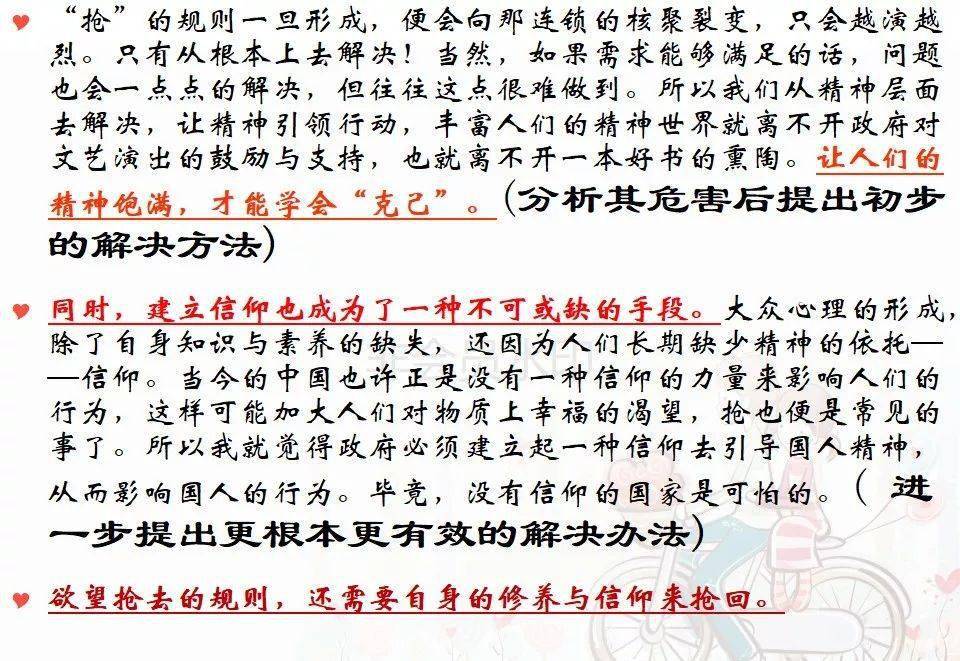 “抢”的规则一旦形成，便会向那连锁的核聚裂变，只会越演越
烈。只有从根本上去解决！当然，如果需求能够满足的话，问题
也会一点点的解决，但往往这点很难做到。所以我们从精神层面
去解决，让精神引领行动，丰富人们的精神世界就离不开政府对
文艺演出的鼓励与支持，也就离不开一本好书的熏陶。让人们的
精神饱满，才能学会“克己”。(分析其危害后提出初步
的解决方法)
同时，建立信仰也成为了一种不可或缺的手段。大众心理的形成，
除了自身知识与素养的缺失，还因为人们长期缺少精神的依托—
—信仰。当今的中国也许正是没有一种信仰的力量来影响人们的
行为，这样可能加大人们对物质上幸福的渴望，抢也便是常见的
事了。所以我就觉得政府必须建立起一种信仰去引导国人精神，
从而影响国人的行为。毕竟，没有信仰的国家是可怕的。( 进
一步提出更根本更有效的解决办法)
欲望抢去的规则，还需要自身的修养与信仰来抢回。